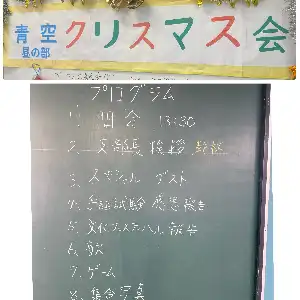 青空 クリスマス会
昼の部
プログラム
1. 開会 13:30
2. 支部長挨拶
3. スペシャル ゲスト
4. 試験 感想報告
5. 文化フェスティバル 報告
6. 歌
7. ゲーム
8. 集合写真